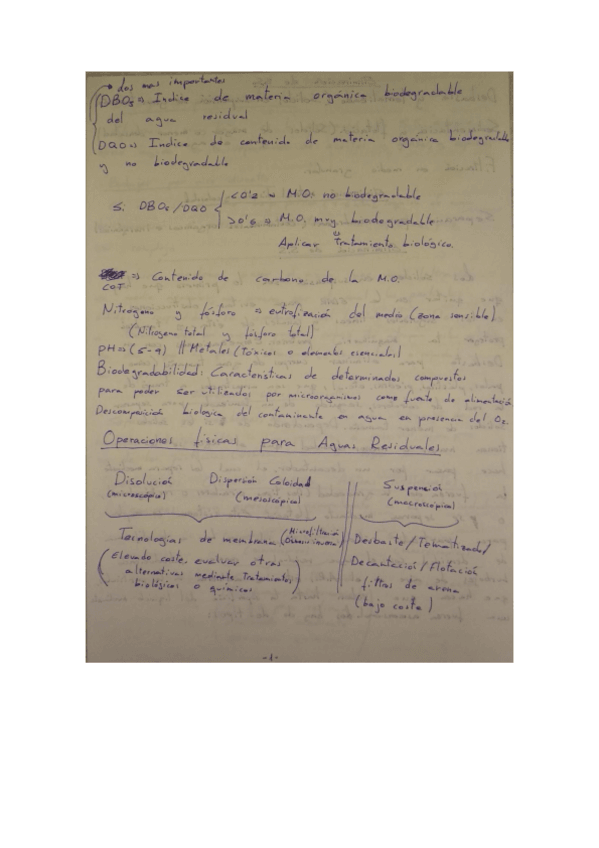 → dos mas importantes
DBO5 => Indice de materia orgánica biodegradable
del agua residual
DQO => Indice de contenido de materia orgánica biodegradable
y no biodegradable
Si DBO5/DQO { <0'2 => M.O. no biodegradable
>0'5 => M.O. muy biodegradable
Aplicar tratamiento biológico.
COT => Contenido de carbono de la M.O.
Nitrógeno y fósforo => eutrofización del medio (zona sensible)
(Nitrógeno total y fósforo total)
pH => (5-9) || Metales (tóxicos o elementos esenciales)
Biodegradabilidad: Características de determinados compuestos
para poder ser utilizados por microorganismos como fuente de alimentación
Descomposición biologica del contaminante en agua en presencia del O2.
Operaciones físicas para Aguas Residuales
Disolución Dispersión Coloidal Suspensión
(microscópica) (mesoscópica) (macroscópica)
Tecnologías de membrana (Microfiltración Osmosis inversa) Desbaste/Tamatizado/
(Elevado coste, evaluar otras Decantación/Flotación
alternativas mediante Tratamientos filtros de arena
biológicos o químicos) (bajo coste)
-1-